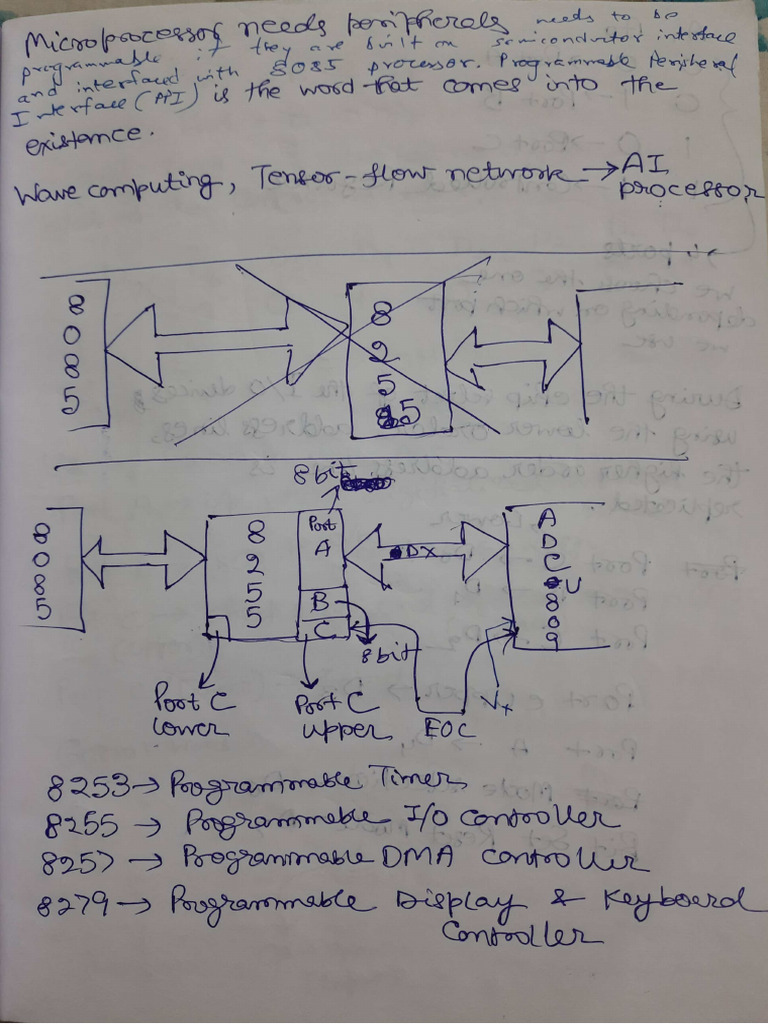 Microprocessor needs peripherals needs to be
programmable if they are built on semiconductor interface
and interfaced with 8085 processor. Programmable Peripheral
Interface (PPI) is the word that comes into the
existence.
Wave computing, Tensor-flow network → AI
processor
8085
8255
8bit
8085
8255
Port
A
B
C
DX
ADC
0809
8bit
Port C
lower
Port C
upper
EOC
8253 → Programmable Timer
8255 → Programmable I/O controller
8257 → Programmable DMA controller
8279 → Programmable Display & Keyboard
Controller